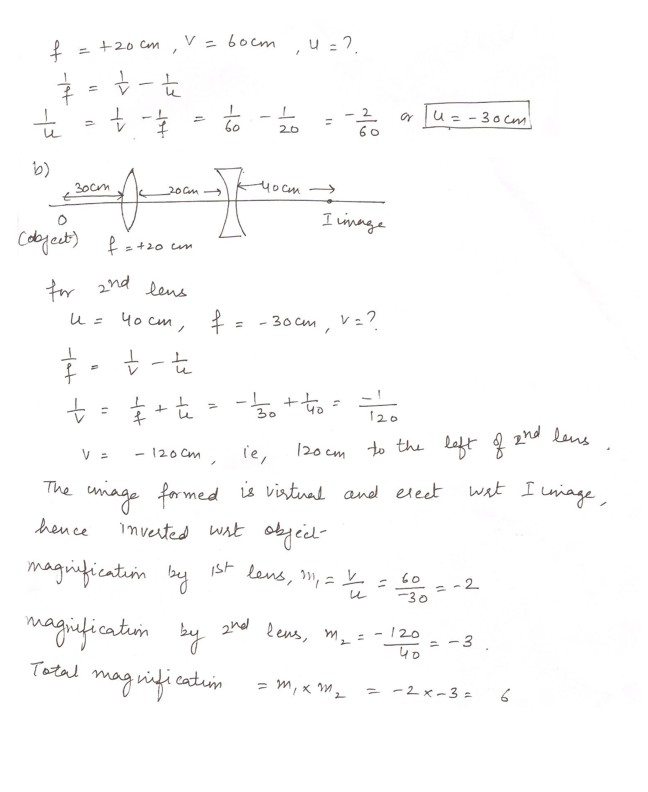 f = +20 cm , V = 60 cm , u = ?.
1/f = 1/V - 1/u
1/u = 1/V - 1/f = 1/60 - 1/20 = -2/60 or u = -30 cm
b)
30cm 20cm 40 cm
O I image
(object) f = +20 cm
for 2nd lens
u = 40 cm, f = -30 cm, v = ?
1/f = 1/v - 1/u
1/v = 1/f + 1/u = -1/30 + 1/40 = -1/120
v = -120 cm, ie, 120 cm to the left of 2nd lens.
The image formed is virtual and erect wrt I image,
hence inverted wrt object
magnification by 1st lens, m₁ = v/u = 60/-30 = -2
magnification by 2nd lens, m₂ = -120/40 = -3.
Total magnification = m₁ x m₂ = -2 x -3 = 6